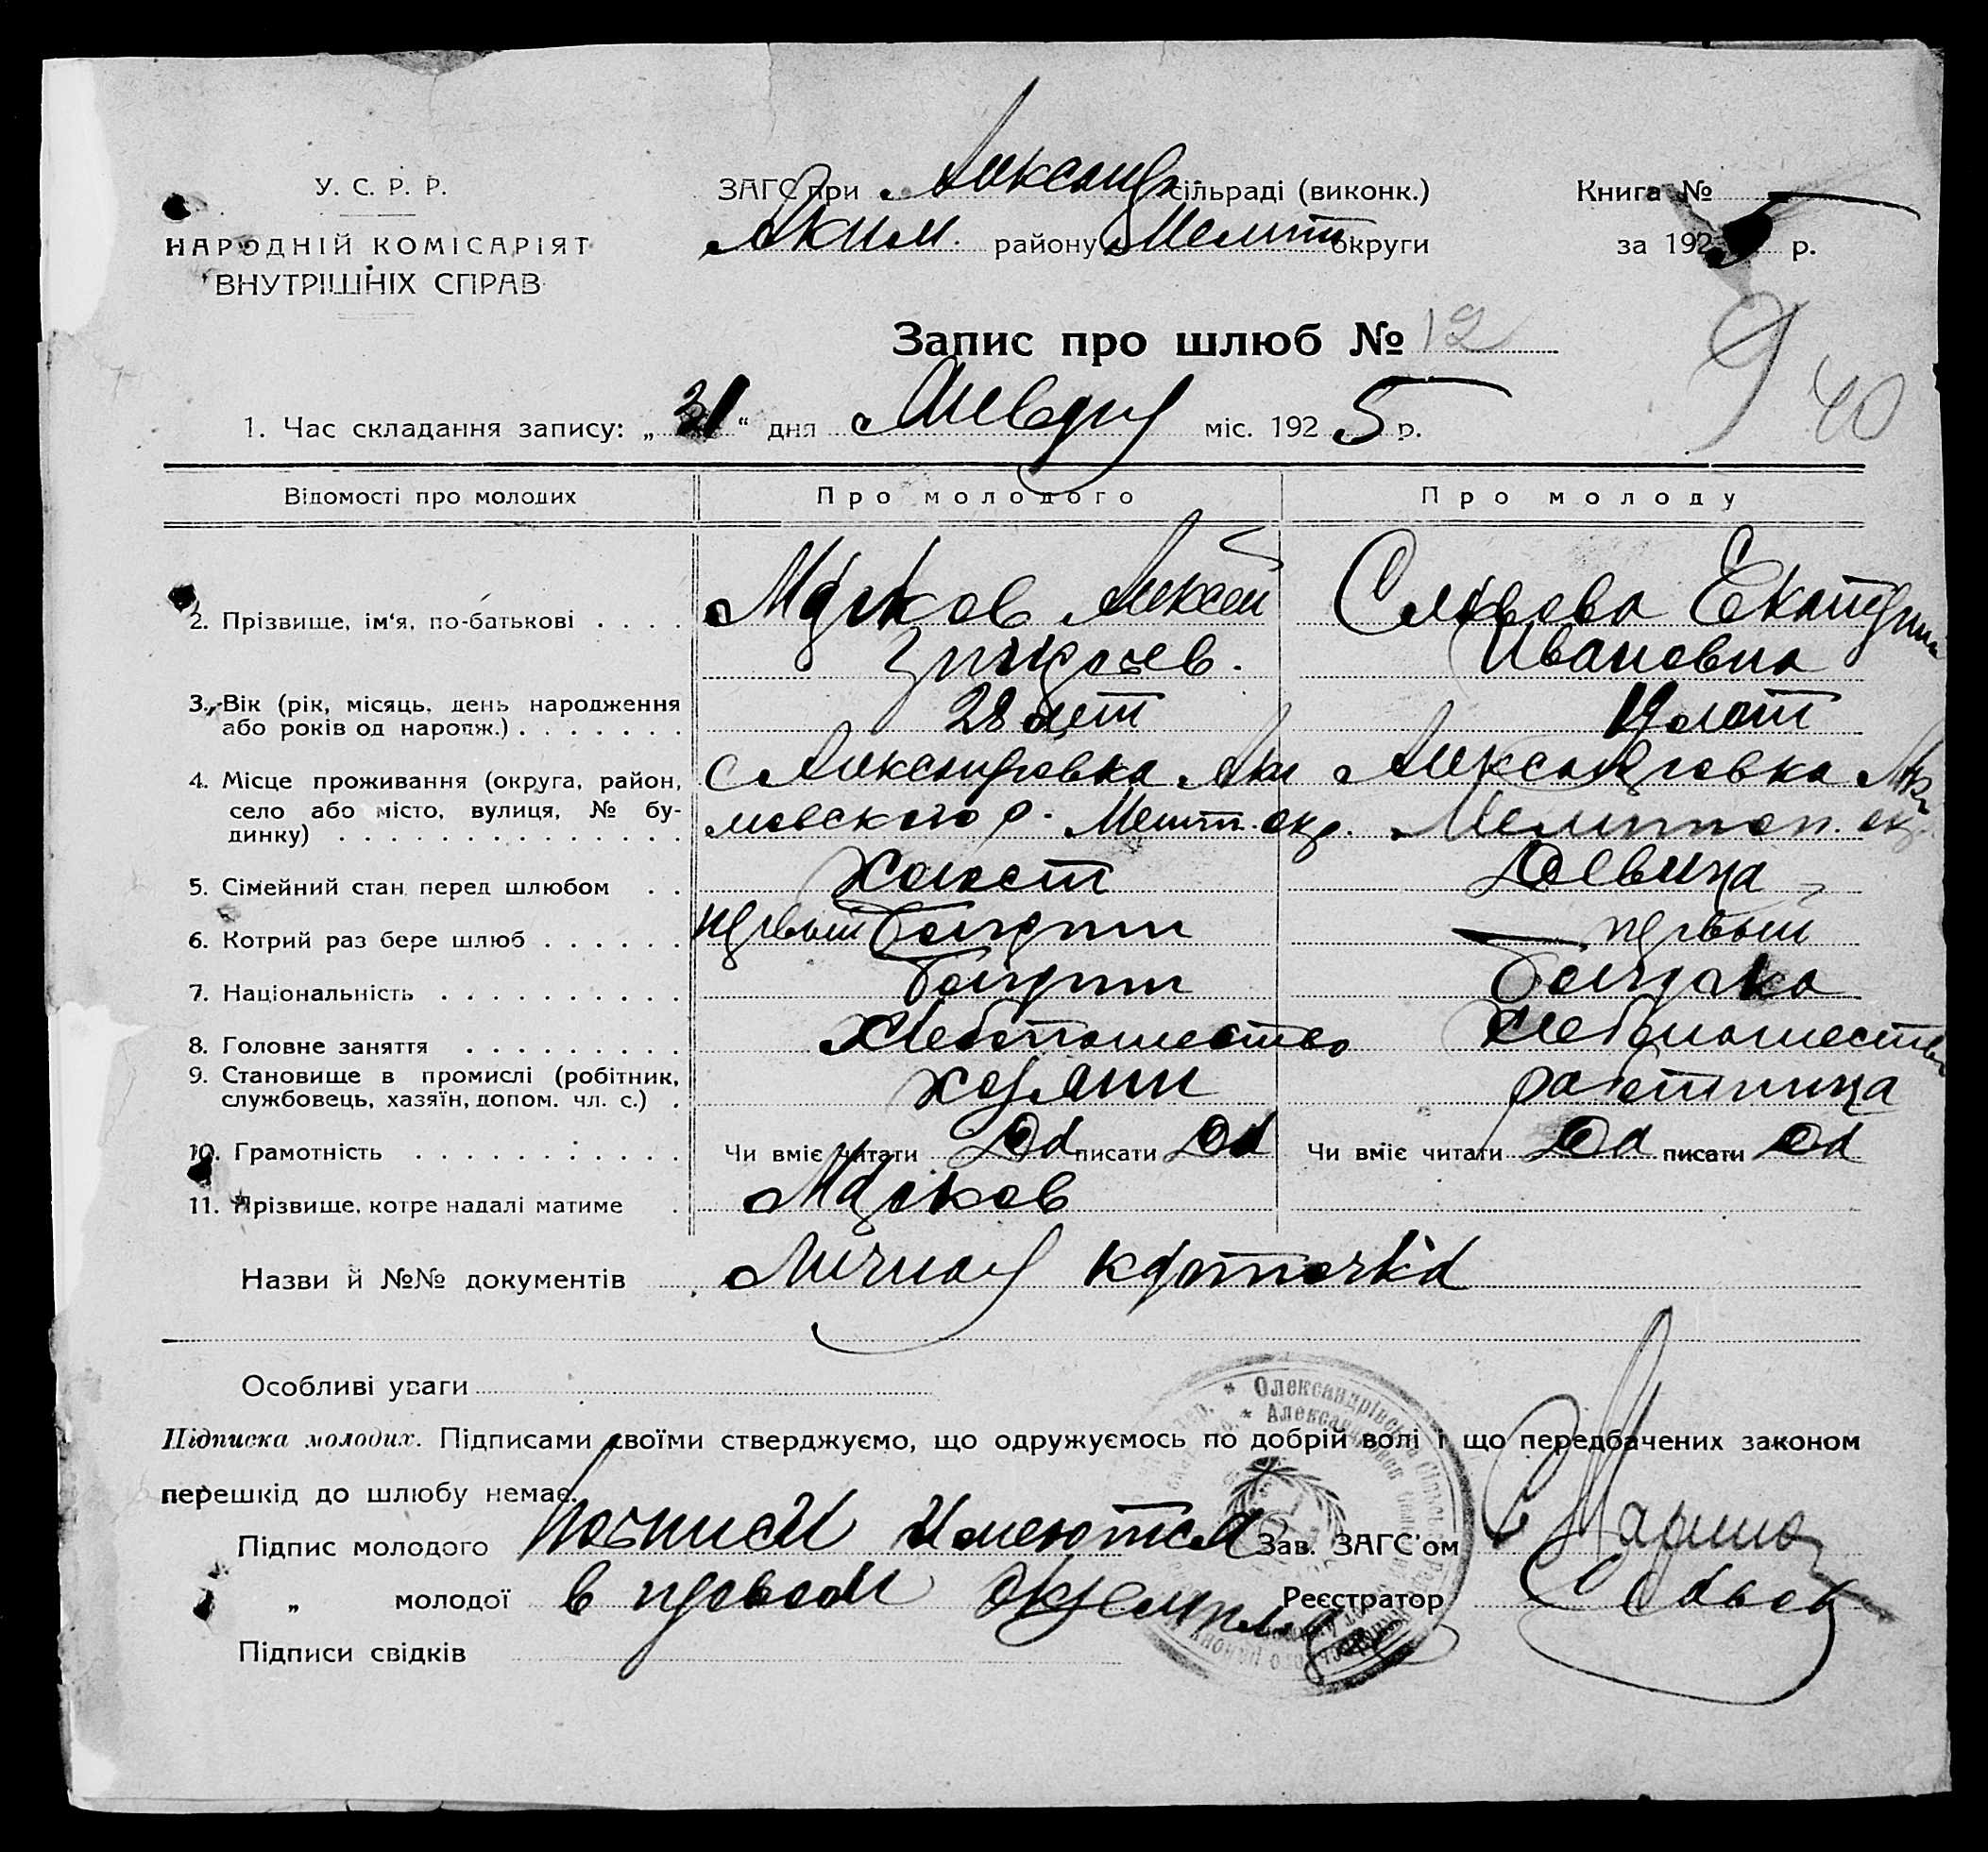 У. С. Р. Р.
НАРОДНІЙ КОМІСАРІЯТ
ВНУТРІШНІХ СПРАВ
ЗАГС при Александр сільраді (виконк.)
Аким. району Мелит округи
Книга №
за 1925 р.
Запис про шлюб № 12
9 40
1. Час складання запису: „21“ дня Января міс. 1925 р.
Відомості про молодих
Про молодого
Про молоду
2. Прізвище, ім'я, по-батькові . . . .
Марков Алексей
Екатерина
Ивановна
3. Вік (рік, місяць, день народження
або років од народж.) . . . . . . .
28 лет
19 лет
4. Місце проживання (округа, район,
село або місто, вулиця, № бу-
динку) . . . . . . . . . . . . . .
с Александровка Аки
мовского р. Мелит. окр.
Александровка Аки
Мелитоп. окр.
5. Сімейний стан перед шлюбом . .
Холост
Девица
6. Котрий раз бере шлюб . . . . . .
первый Болгарин
первый
7. Національність . . . . . . . . . .
Болгарин
Болгарка
8. Головне заняття . . . . . . . . .
Хлебопашество
Хлебопашество
9. Становище в промислі (робітник,
службовець, хазяїн, допом. чл. с.) .
хозяин
работница
10. Грамотність . . . . . . . . . . .
Чи вміє читати Да писати Да
Чи вміє читати Да писати Да
11. Прізвище, котре надалі матиме .
Марков
Назви й №№ документів Личная карточка
Особливі уваги
Підписка молодих. Підписами своїми стверджуємо, що одружуємось по добрій волі і що передбачених законом
перешкід до шлюбу немає.
Підпис молодого Подписи имеются
Зав. ЗАГС'ом
„ молодої в первом экземпляре
Реєстратор
Підписи свідків